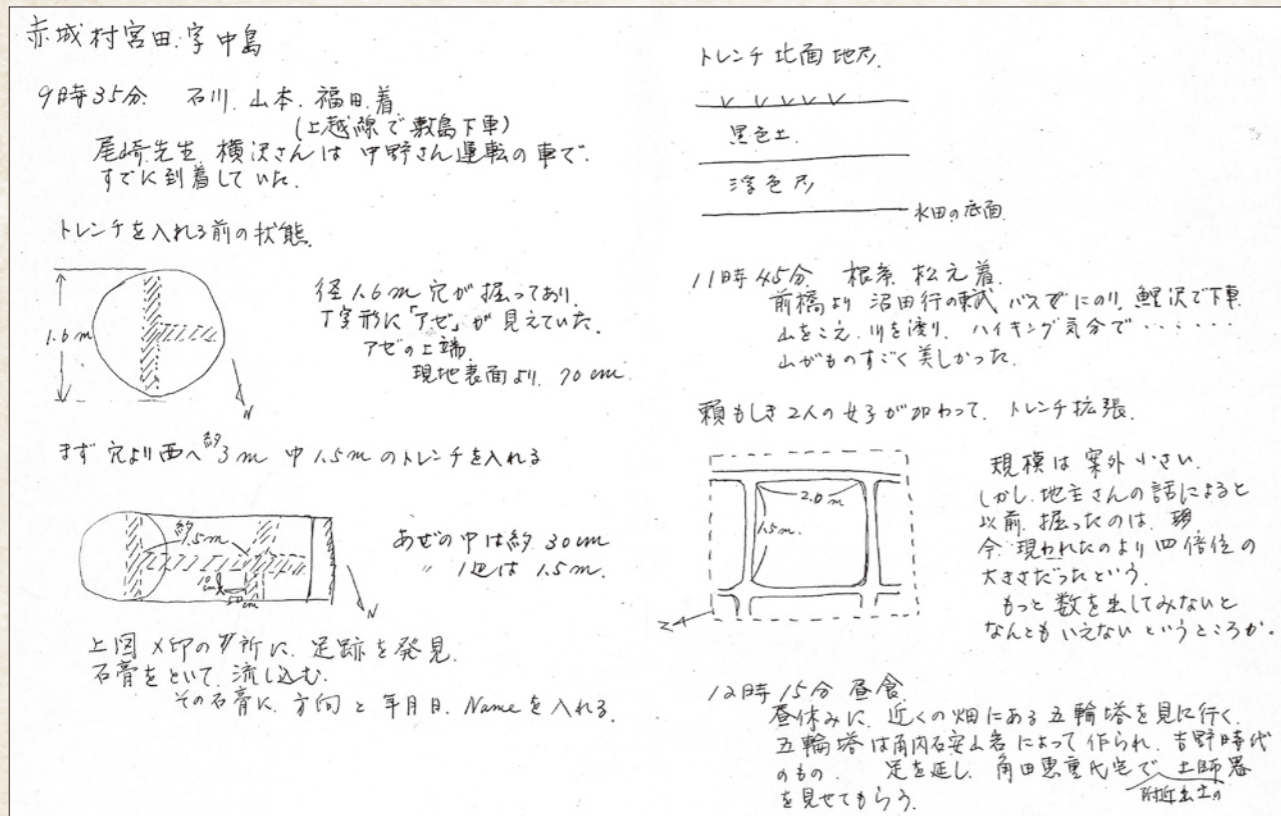 赤城村宮田.字中島
9時35分. 石川.山本.福田.着
(上越線で敷島下車)
尾崎先生.横沢さんは 中野さん運転の車で.
すでに到着していた.
トレンチを入れる前の状態.
1.6m
N
径1.6m穴が掘ってあり.
T字形に「アゼ」が見えていた.
アゼの上端.
現地表面より.70cm.
まず穴より西へ約3m 巾1.5mのトレンチを入れる
約
1.5m
10cm
50cm
N
あぜの巾は約.30cm
〃 1辺は1.5m.
上図×印のヶ所に.足跡を発見.
石膏をといて.流し込む.
その石膏に.方向と年月日.Nameを入れる.
トレンチ北面地形.
黒色土.
水田の底面.
11時45分. 根岸.松元着.
前橋より沼田行の東武バスでにのり.鯉沢で下車.
山をこえ.川を渡り.ハイキング気分で・・・・・・
山がものすごく美しかった.
頼もしき2人の女子が加わって.トレンチ拡張.
2.0m
1.5m
N
規模は案外小さい.
しかし.地主さんの話によると
以前.掘ったのは.
今.現われたのより四倍位の
大きさだったという.
もっと数を出してみないと
なんともいえないというところか.
12時15分 昼食.
昼休みに.近くの畑にある五輪塔を見に行く.
五輪塔は角閃石安山岩によって作られ.吉野時代
のもの. 足を延し.角田恵重氏宅で土師器
附近出土の
を見せてもらう.